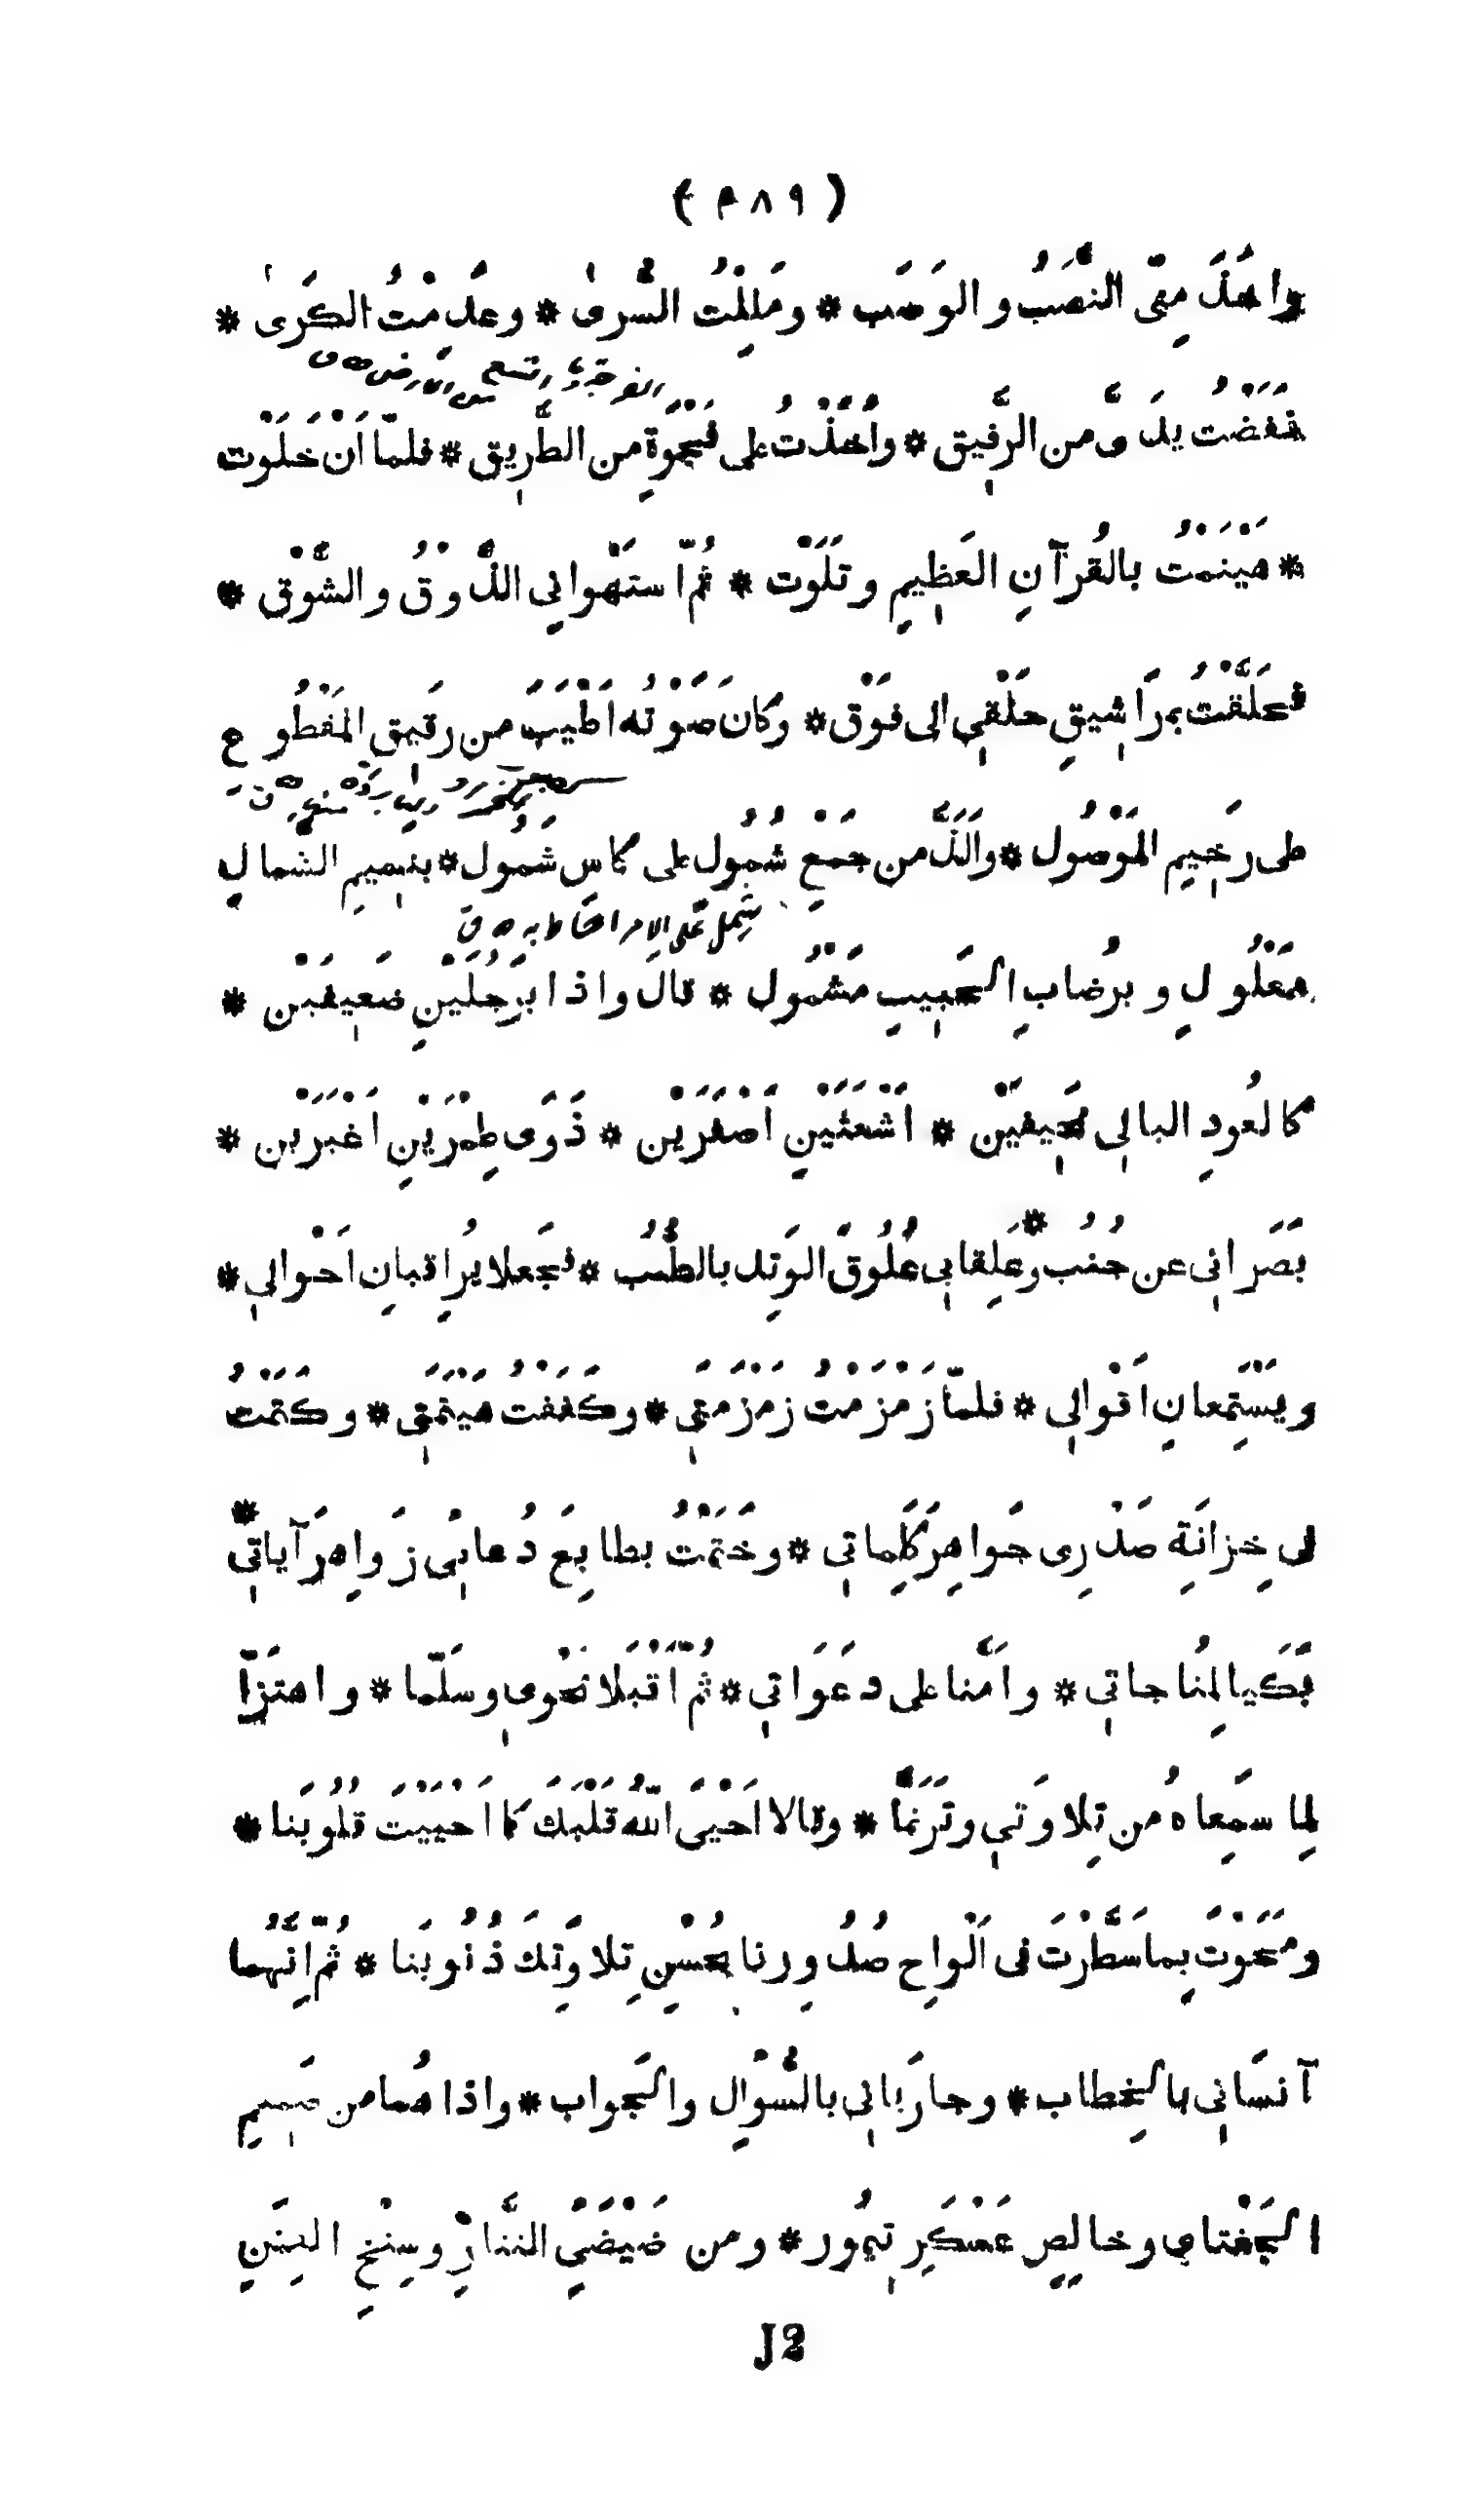 ( ٣٨٩ )
واخَذَ مِنّى النَّصَبُ والوَصَب * ومَلِلْتُ السُّرىٰ * وعَدِمْتُ الكَرَىٰ *
الفرجة
فنَفَضْتُ يدَىَّ من الرَّفِيق * واَخَذْتُ على فَجْوَةٍ من الطَّرِيق * فلمّا اَنْ خَلَوْت
* هَيْنَمْتُ بالقُرآنِ العَظِيمِ وتَلَوْت * ثُمّ اسْتَهْوانِي الذَّوْقُ والشَّوْق *
فحَلَّقْتُ بمَراشِيقِ حَلْقِي الى فَوْق * وكانَ صَوْتُه اَطْيَبَ من رقيقِ المَقْطُوعِ
على رَخِيمِ المَوْصُول * واَلَذَّ من جَمْعِ شُمُول على كاسِ شَمُول * بنَسِيمِ الشَّمالِ
شمل
مَعْلُولٍ وبرُضابِ الحَبِيبِ مَشْمُول * قالَ واذا برَجُلَيْنِ ضَعِيفَيْن *
كالعُودِ البالِى نَحِيفَيْن * اَشْعَثَيْنِ اَصْفَرَيْن * ذَوَى طِمْرَيْنِ اَغْبَرَيْن *
بَصَرانِى عن جُنُب * وعَلِقا بِى عُلُوقَ الوَتِد بالطُّنُب * فجَعلا يُراقبانِ اَحْوالِى *
ويَسْتَمِعانِ اَقْوالِى * فلمّا زَمْزَمْتُ زَمْزَمَتِى * وكَفَفْتُ هَيْنَمَتِى * وكَتَمْتُ
فى خِزانَةِ صَدْرِى جَواهِرَ كَلِماتِى * وخَتَمْتُ بطابِعَ دُعائِى زَواهِرَ آياتِى *
بَكَيا لِمُناجاتِى * واَمَّنا على دعَوَاتِى * ثُمّ اَقْبَلا نَحْوِى وسَلّما * واهتَزّا
لِما سمِعاهُ من تِلاوَتِى وتَرَنَّما * وقالا اَحْيَى اللّٰهُ قَلْبَكَ كما اَحْيَيْتَ قُلُوبَنا *
ومَحَوْتَ بِما سَطَّرْتَ فى اَلْواحِ صُدُورِنا بحُسْنِ تِلاوَتِكَ ذُنُوبَنا * ثُمّ اِنَّهُما
آنَسَانِى بالخِطاب * وجارَيانِى بالسُّؤالِ والجَواب * واذا هُما من صَمِيمِ
الجَغْتاى وخالِصِ عَسْكَرِ تِيمُور * ومن ضَيْضَئِ التَّتارِ وسِنْخِ
J2